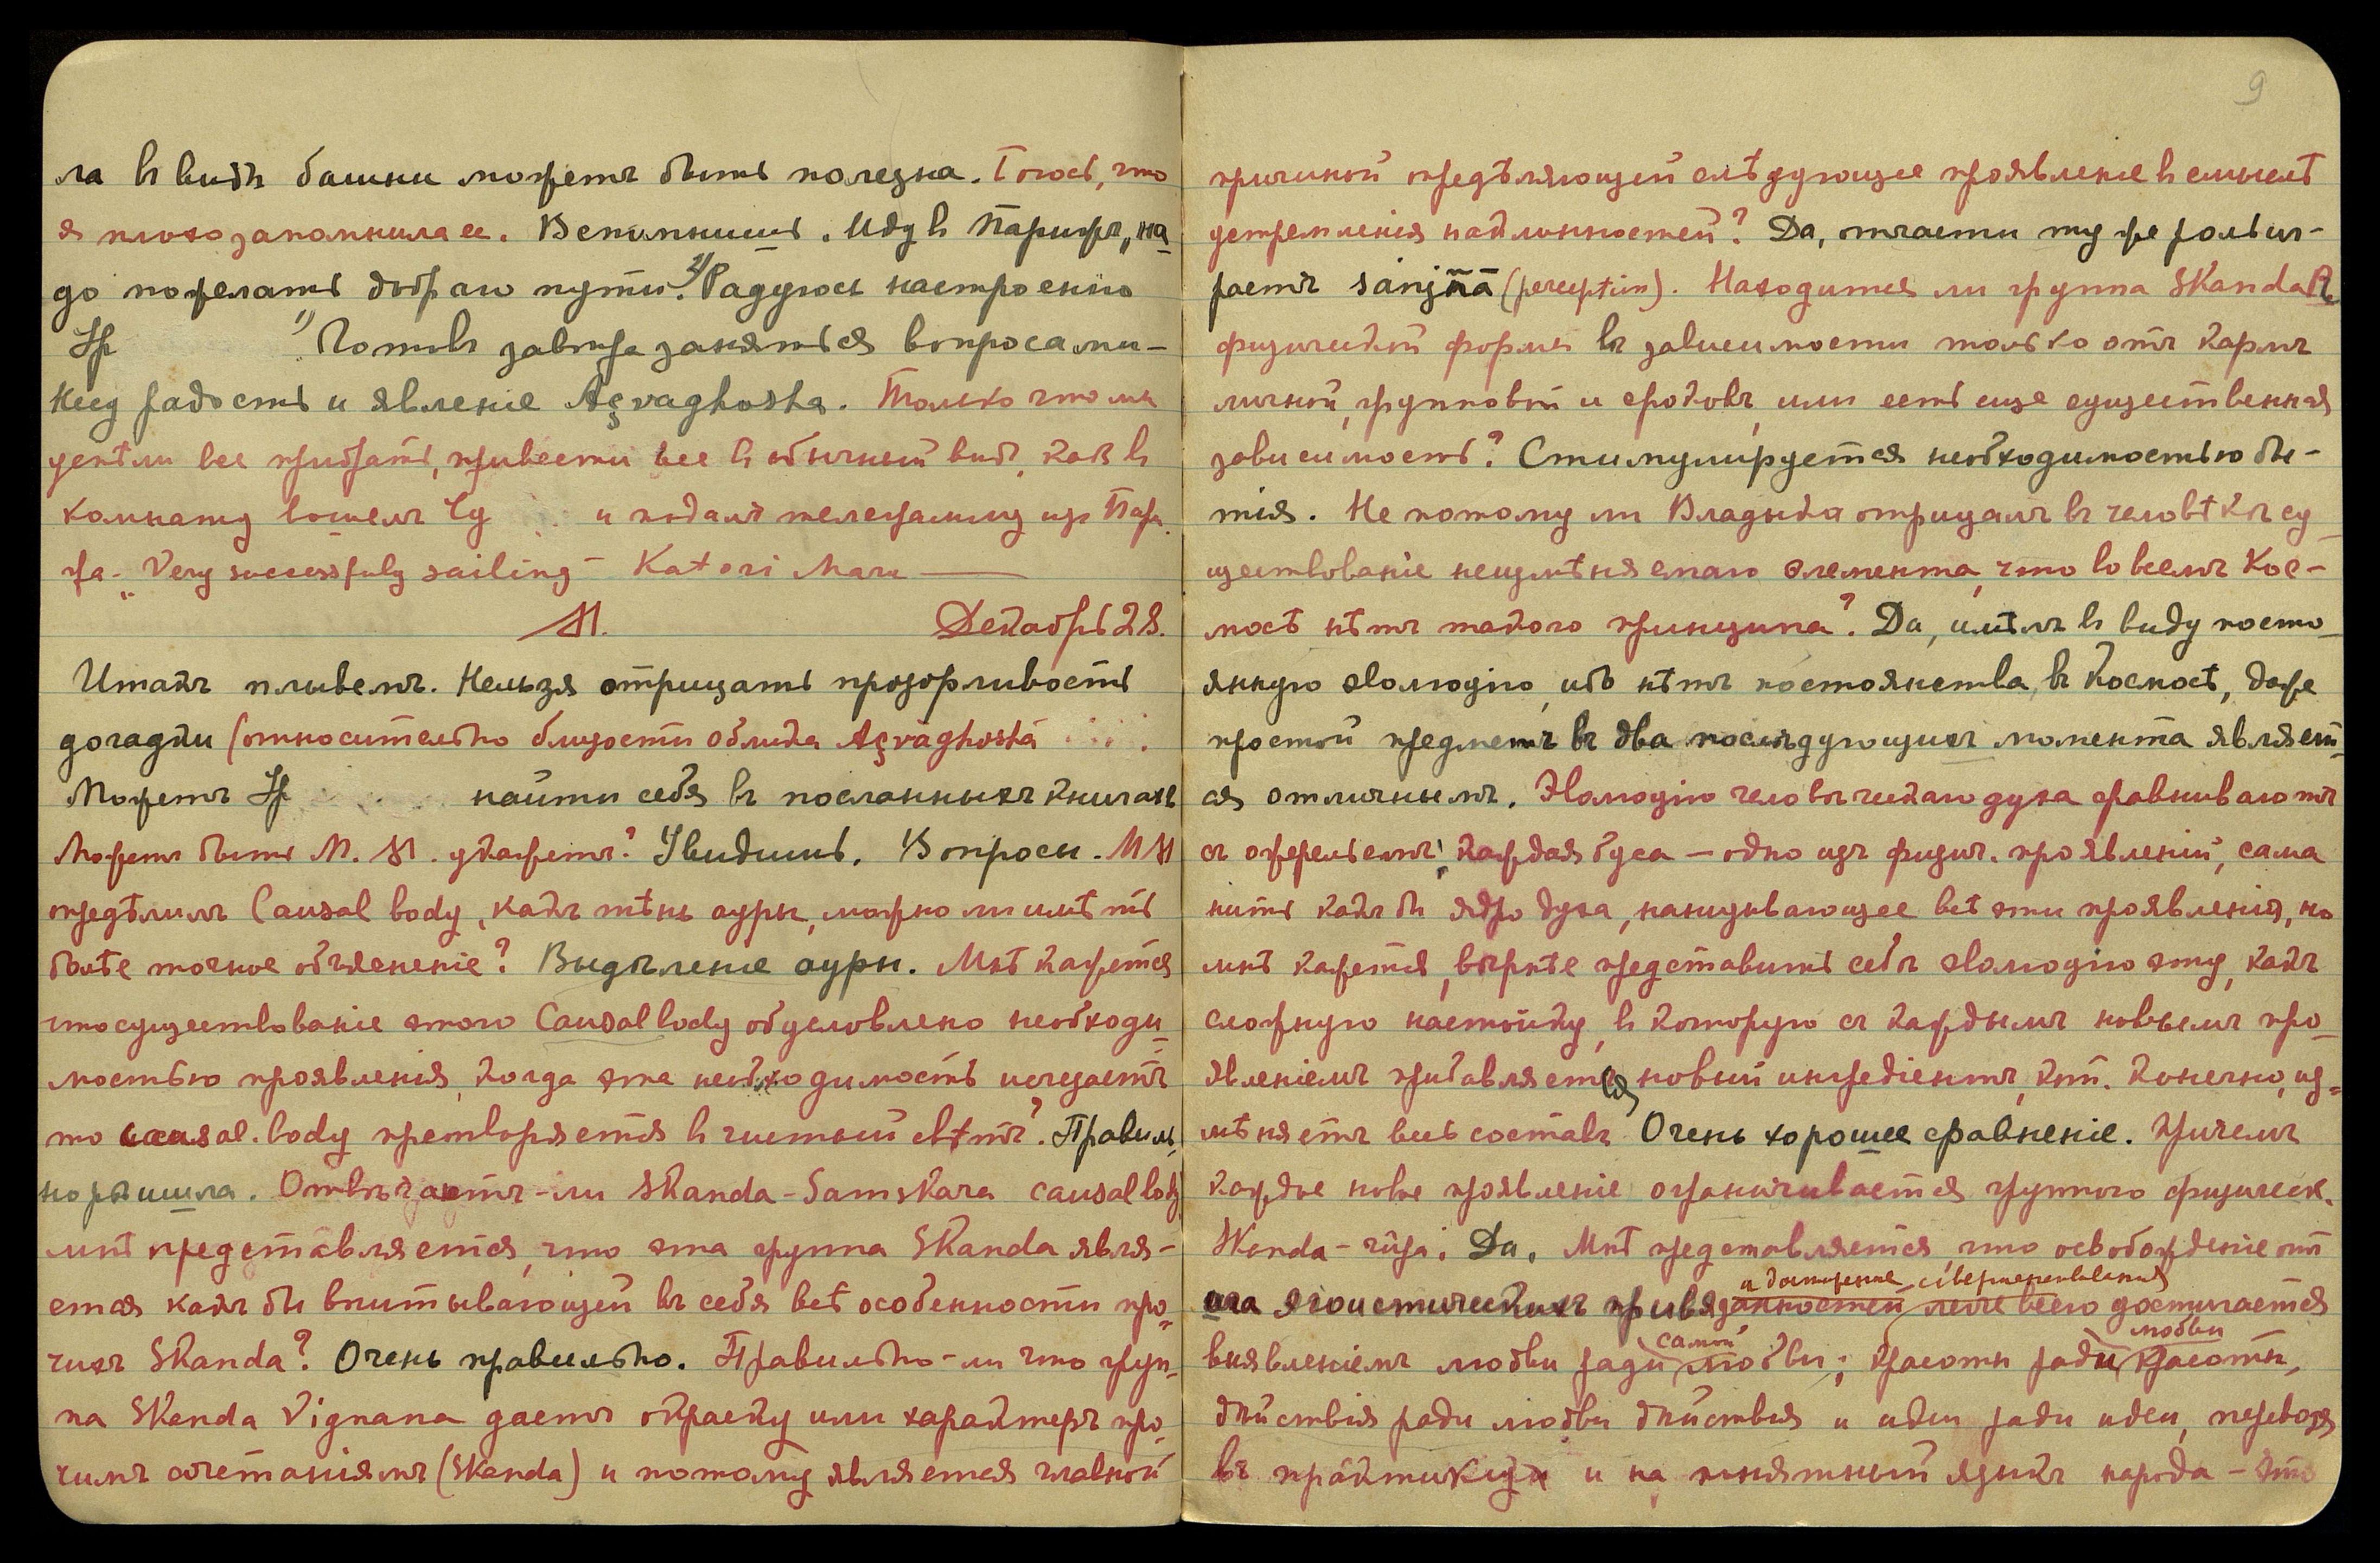 ла въ видѣ башни можетъ быть полезна. Боюсь, что
я плохо запомнила ее. Вспомнишь. Иду въ Парижъ, на
до пожелать добраго пути. Радуюсь настроенію
Яр Готовъ завтра заняться вопросами –
несу радость и явленіе Açvaghosha. Только что мы
успѣли все прибрать, привести все въ обычный видъ, какъ въ
комнату вошелъ Чу и подалъ телеграмму изъ Пари
жа – "Very successfuly sailing – Katori Maru —
11. Декабрь 28.
Итакъ плывемъ. Нельзя отрицать прозорливость
догадки (относительно близости облика Açvaghosha
Можетъ Яр найти себя въ посланныхъ книгахъ
Можетъ быть М. М. укажетъ? Увидишь. Вопросы. М М
опредѣлилъ Causal body, какъ тѣнь ауры, можно ли имѣть
болѣе точное объясненіе? Выдѣленіе ауры. Мнѣ кажется
что существованіе этого Causal body обусловлено необходи
мостью проявленія, когда эта необходимость исчезаетъ
то causal. body претворяется въ чистый свѣтъ? Правиль
но рѣшила. Отвѣчаетъ-ли Skanda-Samskara causal body
мнѣ представляется, что эта группа Skanda явля-
ется какъ бы впитывающей въ себя всѣ особенности про
чихъ Skanda? Очень правильно. Правильно-ли что груп
па Skanda Vignana даетъ окраску или характеръ про
чимъ сочетаніямъ (Skanda) и потому является главной
9
причиной опредѣляющей слѣдующее проявленіе въ смыслѣ
устремленія наклонностей? Да, отчасти ту же роль иг-
раетъ sanjñā (perception). Находится ли группа Skanda
физической формы въ зависимости только отъ Кармъ
личной, групповой и сродовъ, или есть еще существенная
зависимость? Стимулируется необходимостью бы-
тія. Не потому ли Владыка отрицалъ въ человѣкѣ су
ществованіе неизмѣняемаго элемента, что во всемъ Кос-
мосѣ нѣтъ такого принципа? Да, имѣлъ въ виду посто
янную эволюцію, ибо нѣтъ постоянства въ Космосѣ, даже
простой предметъ въ два послѣдующихъ момента являет
ся отличнымъ. Эволюцію человѣческаго духа сравниваютъ
съ ожерельемъ: каждая буса – одно изъ физич. проявленій, сама
нить какъ бы ядро духа, нанизывающее всѣ эти проявленія, но
мнѣ кажется, вѣрнѣе представить себѣ эволюцію эту, какъ
сложную настойку, въ которую съ каждымъ новымъ про
явленіемъ прибавляется новый ингредіентъ, кот. конечно, из=
мѣняетъ весь составъ Очень хорошее сравненіе. Причемъ
каждое новое проявленіе ограничивается группою физическ.
Skanda-rūpa. Да. Мнѣ представляется, что освобожденіе от
и достиженіе совершенствованія
эгоистическихъ привязанностей легче всего достигается
самой любви
выявленіемъ любви ради любви; красоты ради красоты,
дѣйствія ради любви дѣйствія и идеи ради идеи, переводя
въ практику и на понятный языкъ народа – это